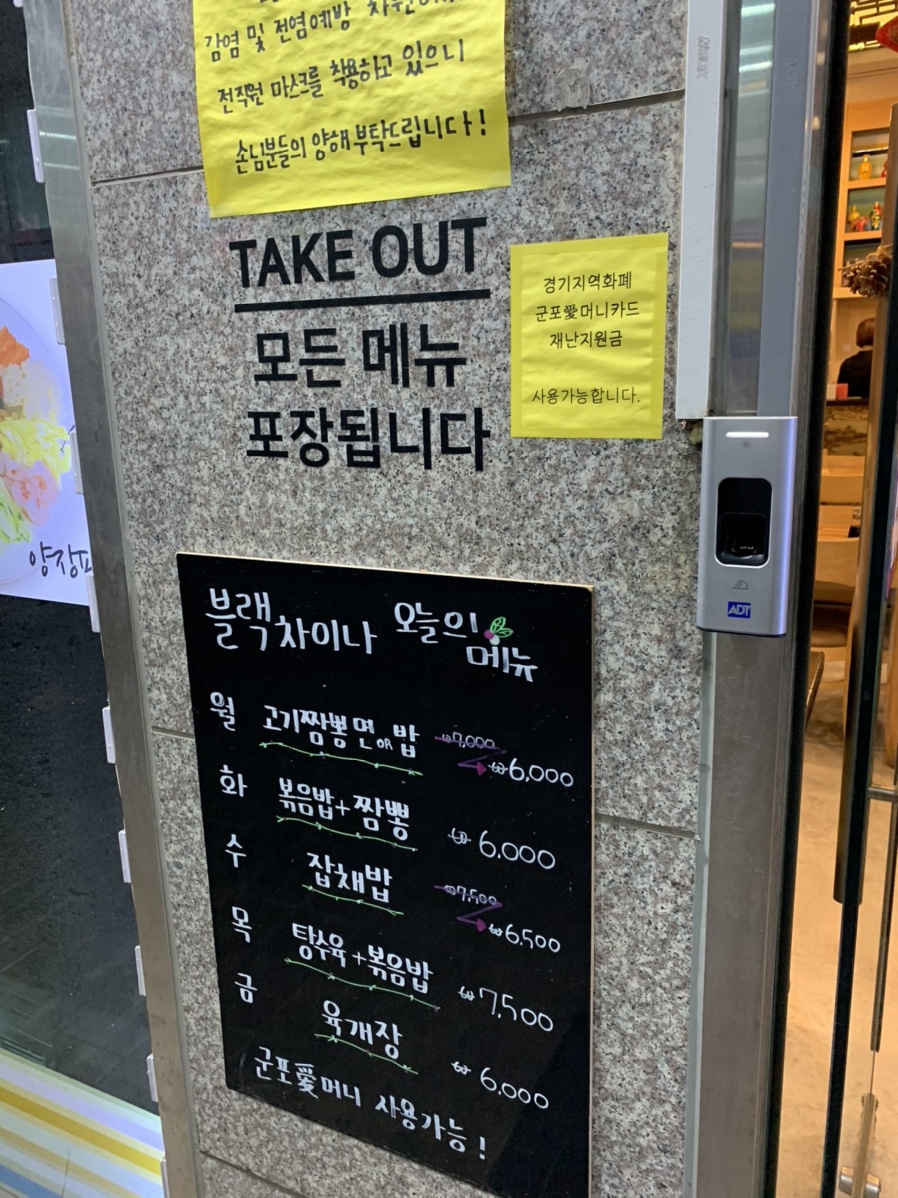 감염 및 전염예방
전직원 마스크를 착용하고 있으니
손님분들의 양해 부탁드립니다!
TAKE OUT
모든 메뉴
포장됩니다
경기지역화폐
군포愛머니카드
재난지원금
사용가능합니다.
양장피
ADT
블랙차이나 오늘의
메뉴
월 고기짬뽕면OR밥 ₩7,000 ₩6,000
화 볶음밥+짬뽕 ₩6.000
수 잡채밥 ₩7,500 ₩6.500
목 탕수육+볶음밥 ₩7,500
금 육개장 ₩6.000
군포愛머니 사용가능!